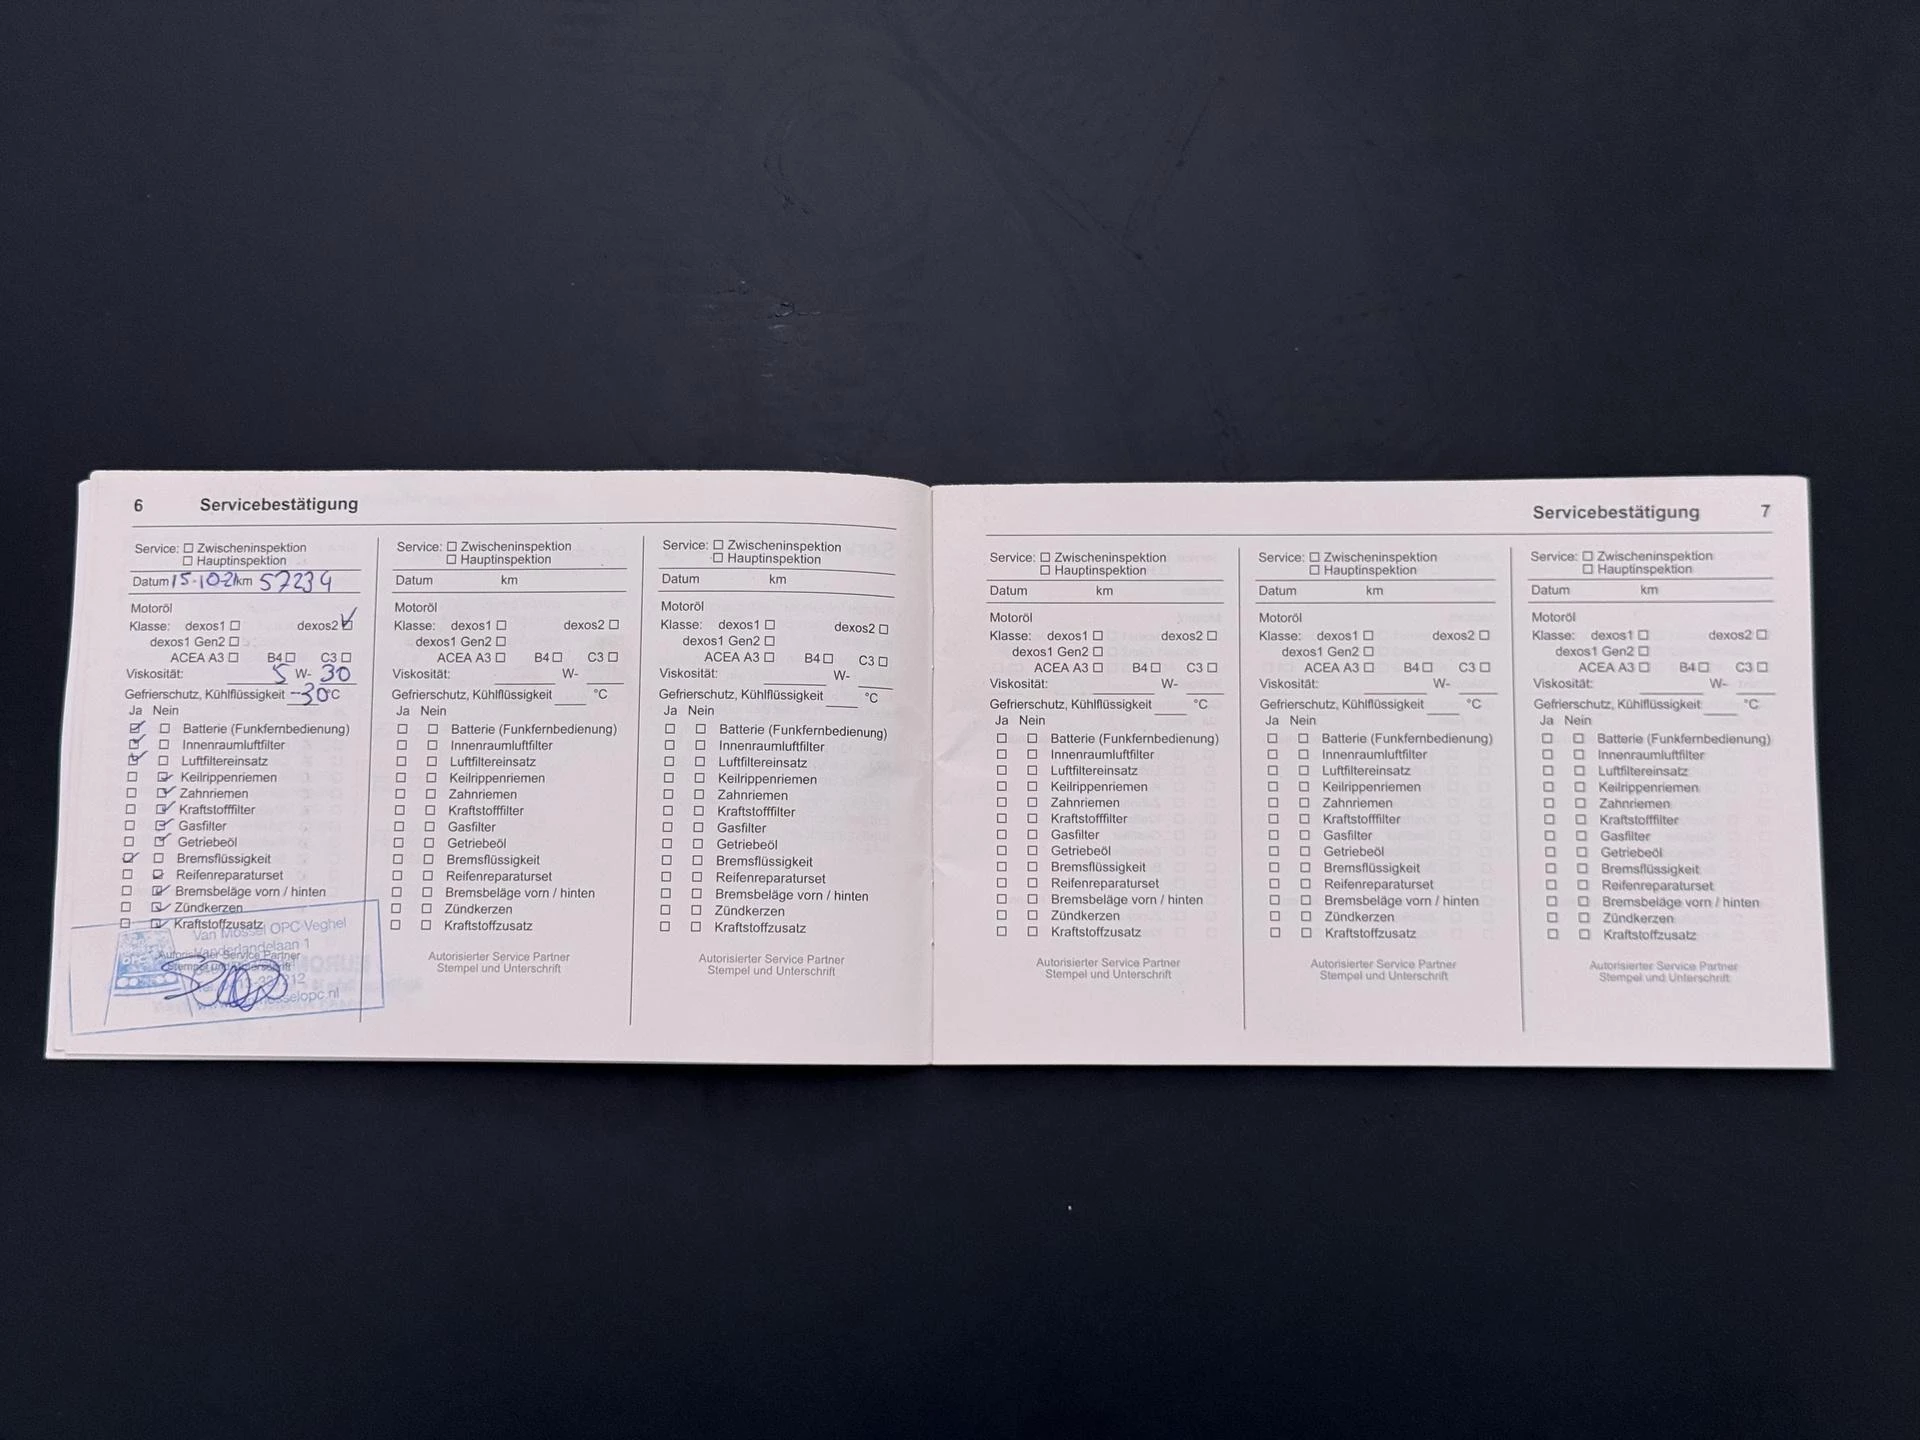 6 Servicebestätigung
Service: ☐ Zwischeninspektion
☐ Hauptinspektion
Datum 15-10-21 km 57234
Motoröl
Klasse: dexos1 ☐ dexos2 ☑
dexos1 Gen2 ☐
ACEA A3 ☐ B4 ☐ C3 ☐
Viskosität: 5 W- 30
Gefrierschutz, Kühlflüssigkeit -30 °C
Ja Nein
☑ ☐ Batterie (Funkfernbedienung)
☑ ☐ Innenraumluftfilter
☑ ☐ Luftfiltereinsatz
☐ ☑ Keilrippenriemen
☐ ☑ Zahnriemen
☐ ☑ Kraftstofffilter
☐ ☑ Gasfilter
☐ ☑ Getriebeöl
☑ ☐ Bremsflüssigkeit
☐ ☑ Reifenreparaturset
☐ ☑ Bremsbeläge vorn / hinten
☐ ☑ Zündkerzen
☐ ☑ Kraftstoffzusatz
Van Mossel OPC Veghel
Vanderlandelaan 1
Autorisierter Service Partner
Stempel und Unterschrift
Service: ☐ Zwischeninspektion
☐ Hauptinspektion
Datum km
Motoröl
Klasse: dexos1 ☐ dexos2 ☐
dexos1 Gen2 ☐
ACEA A3 ☐ B4 ☐ C3 ☐
Viskosität: W-
Gefrierschutz, Kühlflüssigkeit °C
Ja Nein
☐ ☐ Batterie (Funkfernbedienung)
☐ ☐ Innenraumluftfilter
☐ ☐ Luftfiltereinsatz
☐ ☐ Keilrippenriemen
☐ ☐ Zahnriemen
☐ ☐ Kraftstofffilter
☐ ☐ Gasfilter
☐ ☐ Getriebeöl
☐ ☐ Bremsflüssigkeit
☐ ☐ Reifenreparaturset
☐ ☐ Bremsbeläge vorn / hinten
☐ ☐ Zündkerzen
☐ ☐ Kraftstoffzusatz
Autorisierter Service Partner
Stempel und Unterschrift
Service: ☐ Zwischeninspektion
☐ Hauptinspektion
Datum km
Motoröl
Klasse: dexos1 ☐ dexos2 ☐
dexos1 Gen2 ☐
ACEA A3 ☐ B4 ☐ C3 ☐
Viskosität: W-
Gefrierschutz, Kühlflüssigkeit °C
Ja Nein
☐ ☐ Batterie (Funkfernbedienung)
☐ ☐ Innenraumluftfilter
☐ ☐ Luftfiltereinsatz
☐ ☐ Keilrippenriemen
☐ ☐ Zahnriemen
☐ ☐ Kraftstofffilter
☐ ☐ Gasfilter
☐ ☐ Getriebeöl
☐ ☐ Bremsflüssigkeit
☐ ☐ Reifenreparaturset
☐ ☐ Bremsbeläge vorn / hinten
☐ ☐ Zündkerzen
☐ ☐ Kraftstoffzusatz
Autorisierter Service Partner
Stempel und Unterschrift
Servicebestätigung 7
Service: ☐ Zwischeninspektion
☐ Hauptinspektion
Datum km
Motoröl
Klasse: dexos1 ☐ dexos2 ☐
dexos1 Gen2 ☐
ACEA A3 ☐ B4 ☐ C3 ☐
Viskosität: W-
Gefrierschutz, Kühlflüssigkeit °C
Ja Nein
☐ ☐ Batterie (Funkfernbedienung)
☐ ☐ Innenraumluftfilter
☐ ☐ Luftfiltereinsatz
☐ ☐ Keilrippenriemen
☐ ☐ Zahnriemen
☐ ☐ Kraftstofffilter
☐ ☐ Gasfilter
☐ ☐ Getriebeöl
☐ ☐ Bremsflüssigkeit
☐ ☐ Reifenreparaturset
☐ ☐ Bremsbeläge vorn / hinten
☐ ☐ Zündkerzen
☐ ☐ Kraftstoffzusatz
Autorisierter Service Partner
Stempel und Unterschrift
Service: ☐ Zwischeninspektion
☐ Hauptinspektion
Datum km
Motoröl
Klasse: dexos1 ☐ dexos2 ☐
dexos1 Gen2 ☐
ACEA A3 ☐ B4 ☐ C3 ☐
Viskosität: W-
Gefrierschutz, Kühlflüssigkeit °C
Ja Nein
☐ ☐ Batterie (Funkfernbedienung)
☐ ☐ Innenraumluftfilter
☐ ☐ Luftfiltereinsatz
☐ ☐ Keilrippenriemen
☐ ☐ Zahnriemen
☐ ☐ Kraftstofffilter
☐ ☐ Gasfilter
☐ ☐ Getriebeöl
☐ ☐ Bremsflüssigkeit
☐ ☐ Reifenreparaturset
☐ ☐ Bremsbeläge vorn / hinten
☐ ☐ Zündkerzen
☐ ☐ Kraftstoffzusatz
Autorisierter Service Partner
Stempel und Unterschrift
Service: ☐ Zwischeninspektion
☐ Hauptinspektion
Datum km
Motoröl
Klasse: dexos1 ☐ dexos2 ☐
dexos1 Gen2 ☐
ACEA A3 ☐ B4 ☐ C3 ☐
Viskosität: W-
Gefrierschutz, Kühlflüssigkeit °C
Ja Nein
☐ ☐ Batterie (Funkfernbedienung)
☐ ☐ Innenraumluftfilter
☐ ☐ Luftfiltereinsatz
☐ ☐ Keilrippenriemen
☐ ☐ Zahnriemen
☐ ☐ Kraftstofffilter
☐ ☐ Gasfilter
☐ ☐ Getriebeöl
☐ ☐ Bremsflüssigkeit
☐ ☐ Reifenreparaturset
☐ ☐ Bremsbeläge vorn / hinten
☐ ☐ Zündkerzen
☐ ☐ Kraftstoffzusatz
Autorisierter Service Partner
Stempel und Unterschrift